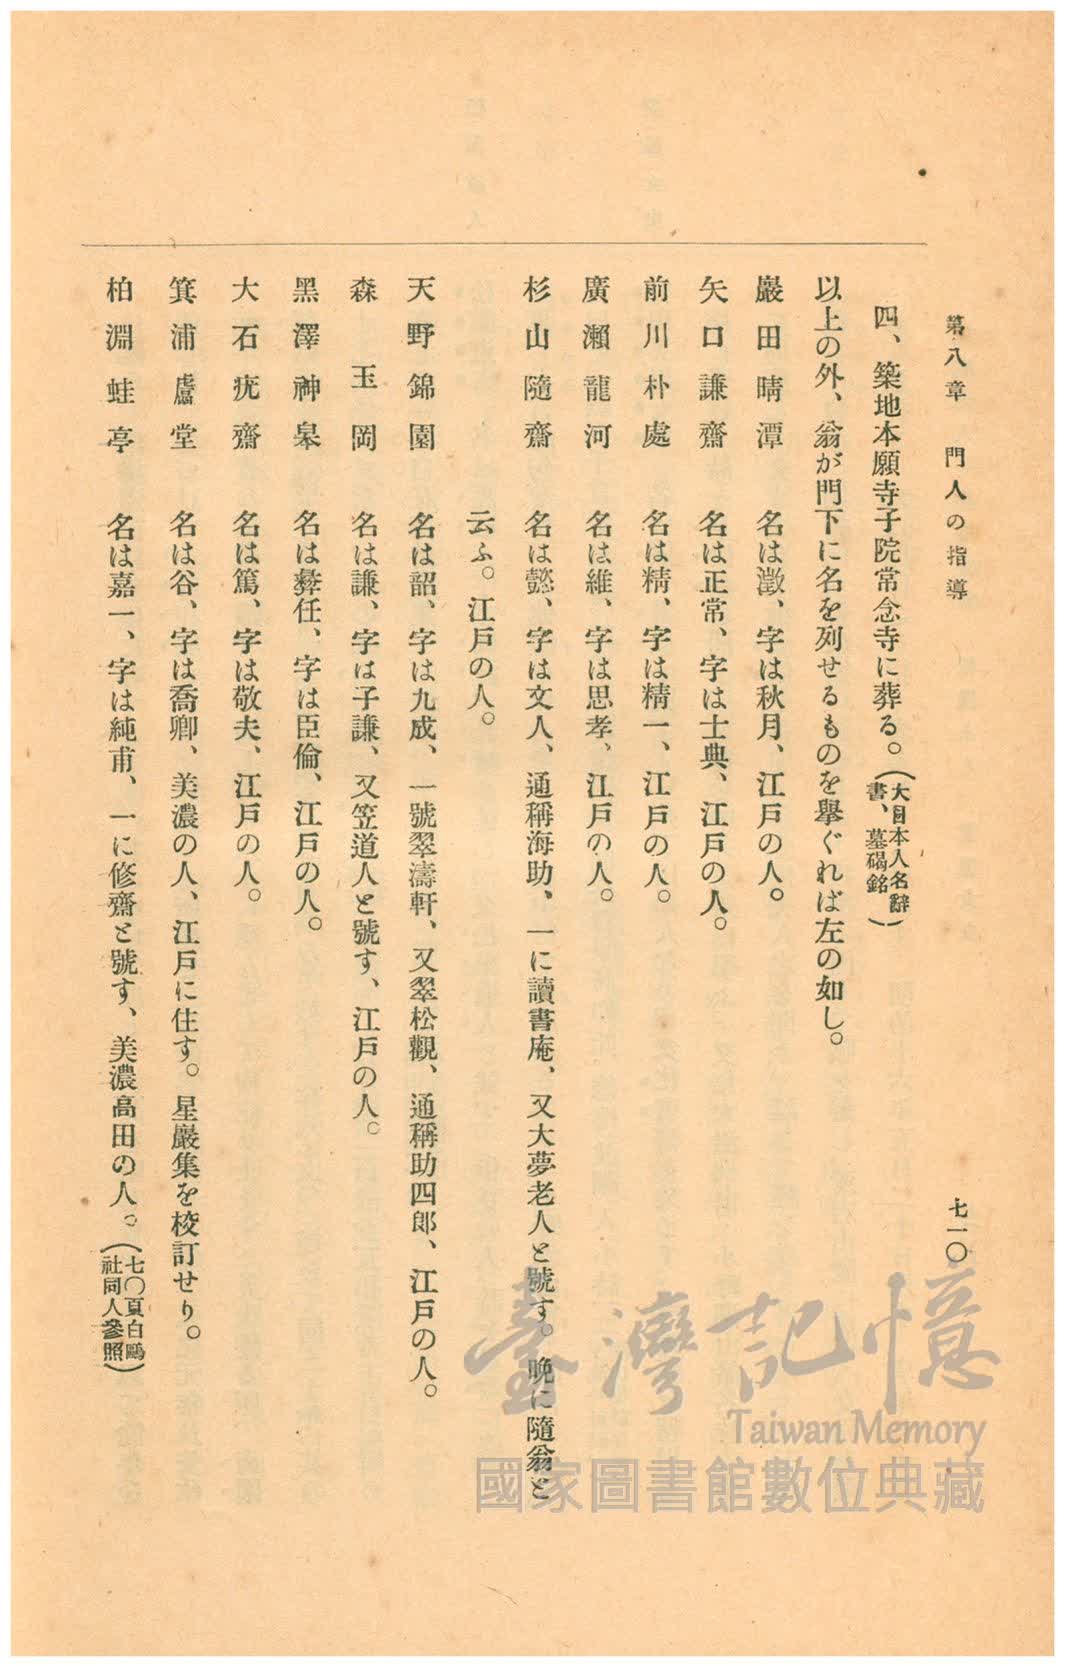 第八章　門人の指導
七一〇
四、築地本願寺子院常念寺に葬る。（大日本人名辭書、墓碣銘）
以上の外、翁が門下に名を列せるものを擧ぐれば左の如し。
巖田晴潭　名は澂、字は秋月、江戸の人。
矢口謙齋　名は正常、字は士典、江戸の人。
前川朴處　名は精、字は精一、江戸の人。
廣瀨龍河　名は維、字は思孝、江戸の人。
杉山隨齋　名は懿、字は文人、通稱海助、一に讀書庵、又大夢老人と號す。晩に隨翁と
云ふ。江戸の人。
天野錦園　名は韶、字は九成、一號翠濤軒、又翠松觀、通稱助四郎、江戸の人。
森玉岡　名は謙、字は子謙、又笠道人と號す、江戸の人。
黑澤神皐　名は彜任、字は臣倫、江戸の人。
大石疣齋　名は篤、字は敬夫、江戸の人。
箕浦盧堂　名は谷、字は喬卿、美濃の人、江戸に住す。星巖集を校訂せり。
柏淵蛙亭　名は嘉一、字は純甫、一に修齋と號す、美濃高田の人。（七〇頁白鷗社同人參照）
臺灣記憶
Taiwan Memory
國家圖書館數位典藏